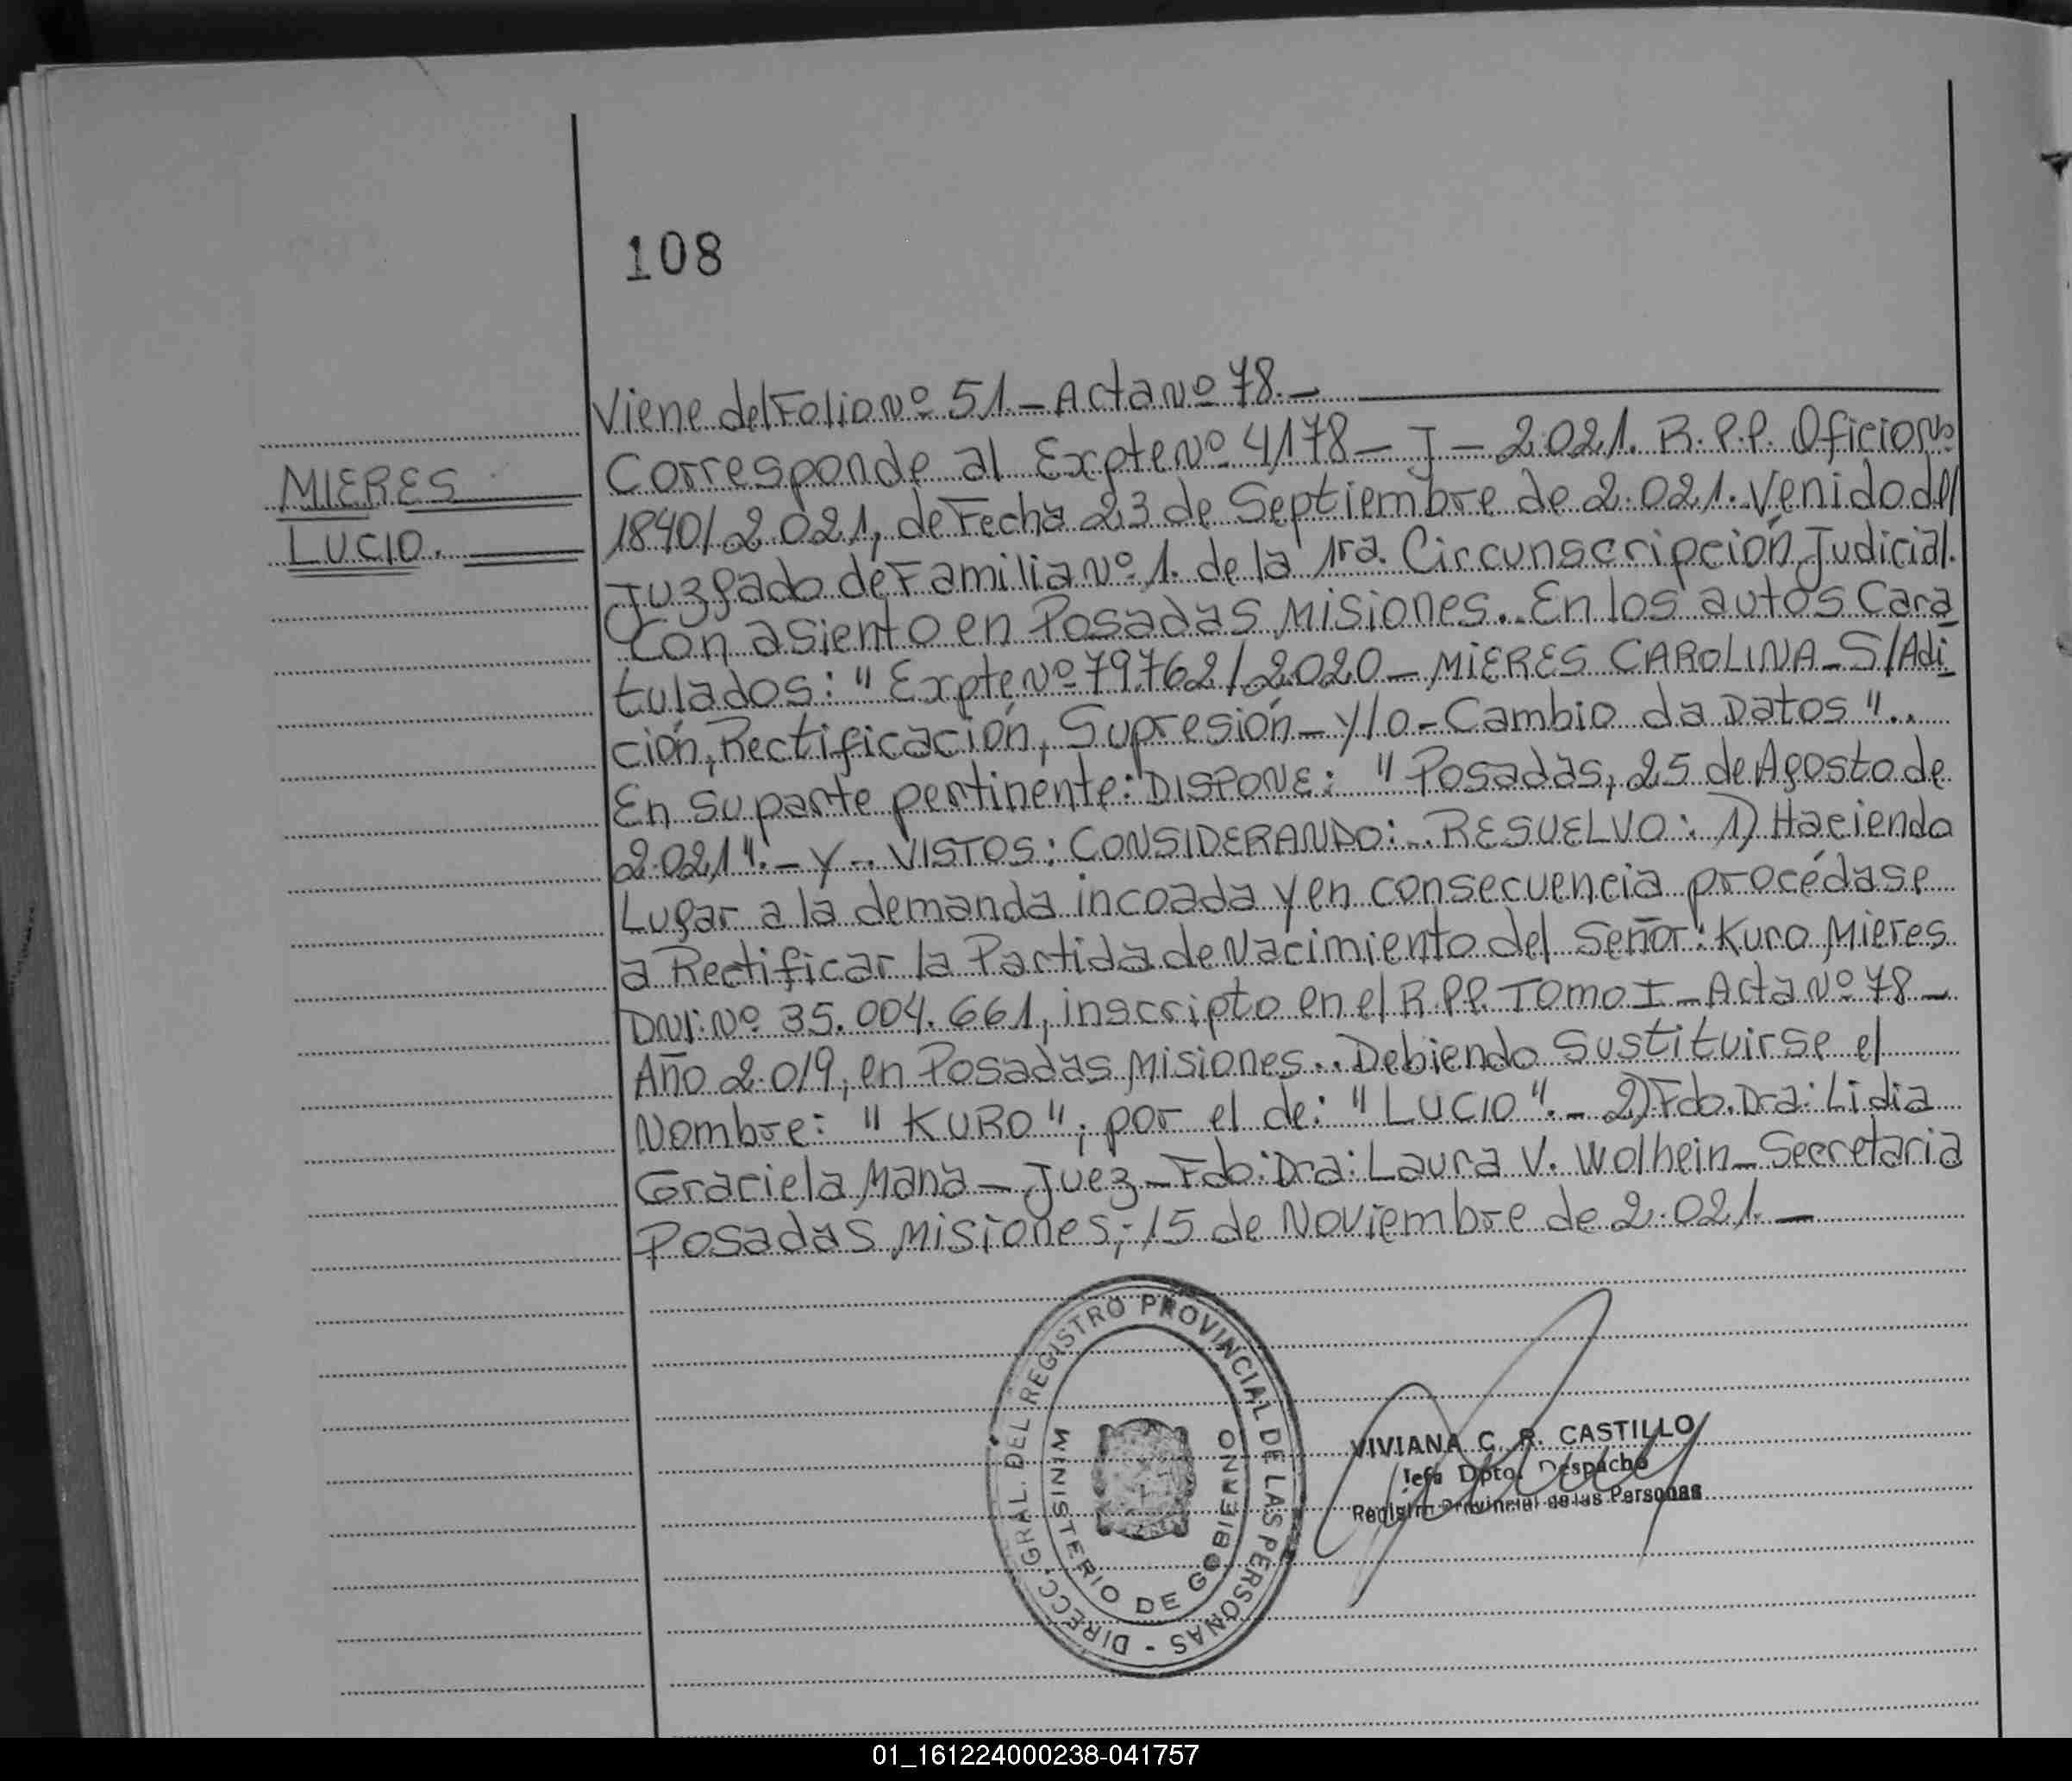 108
Viene del Folio Nº 51.- Acta Nº 78.-
MIERES
LUCIO.
Corresponde al Expte Nº 4178- J - 2.021. R.P.P. Oficio Nº
1840/2.021, de Fecha 23 de Septiembre de 2.021. Venido del
Juzgado de Familia Nº 1. de la 1ra. Circunscripción Judicial.
Con asiento en Posadas Misiones.. En los autos Cara
tulados: "Expte Nº 79.762/2.020- MIERES CAROLINA- S/Adi
ción, Rectificación, Supresión- y/o- Cambio da Datos"..
En su parte pertinente: DISPONE: "Posadas, 25 de Agosto de
2.021".- Y.. VISTOS: CONSIDERANDO:.. RESUELVO: 1) Haciendo
Lugar a la demanda incoada y en consecuencia procédase
a Rectificar la Partida de Nacimiento del Señor: Kuro Mieres
DNI: Nº 35.004.661, inscripto en el R.P.P. Tomo I- Acta Nº 78-
Año 2.019, en Posadas Misiones.. Debiendo Sustituirse el
Nombre: "KURO", por el de: "LUCIO".- 2) Fdo. Dra: Lidia
Graciela Mana- Juez- Fdo: Dra: Laura V. Wolhein- Secretaria
Posadas Misiones,- 15 de Noviembre de 2.021.-
DIRECC. GRAL. DEL REGISTRO PROVINCIAL DE LAS PERSONAS -
MINISTERIO DE GOBIERNO
VIVIANA C. R. CASTILLO
Jefa Dpto. Despacho
Registro Provincial de las Personas
01_161224000238-041757